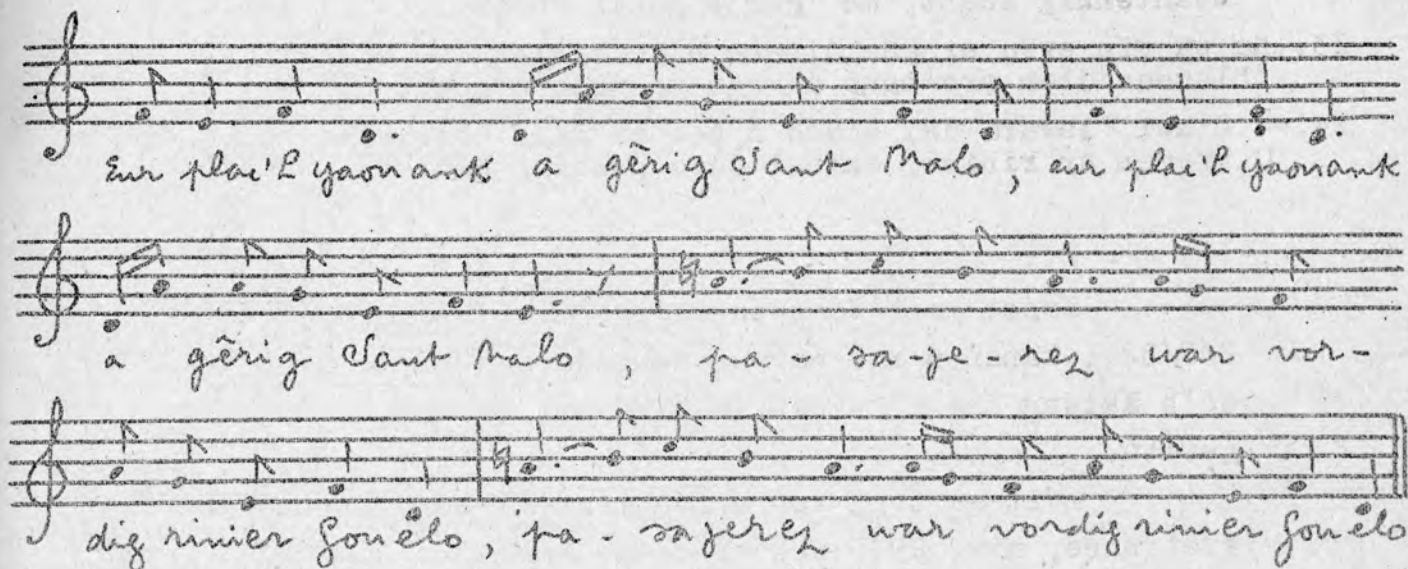 Eur plac'h yaouank a gêrig Sant Malo, eur plac'h yaouank
a gêrig Sant Malo, pa - sa - je - rez war vor -
dig rinier Gouélo, pa - sajerez war vordig rinier Gouélo